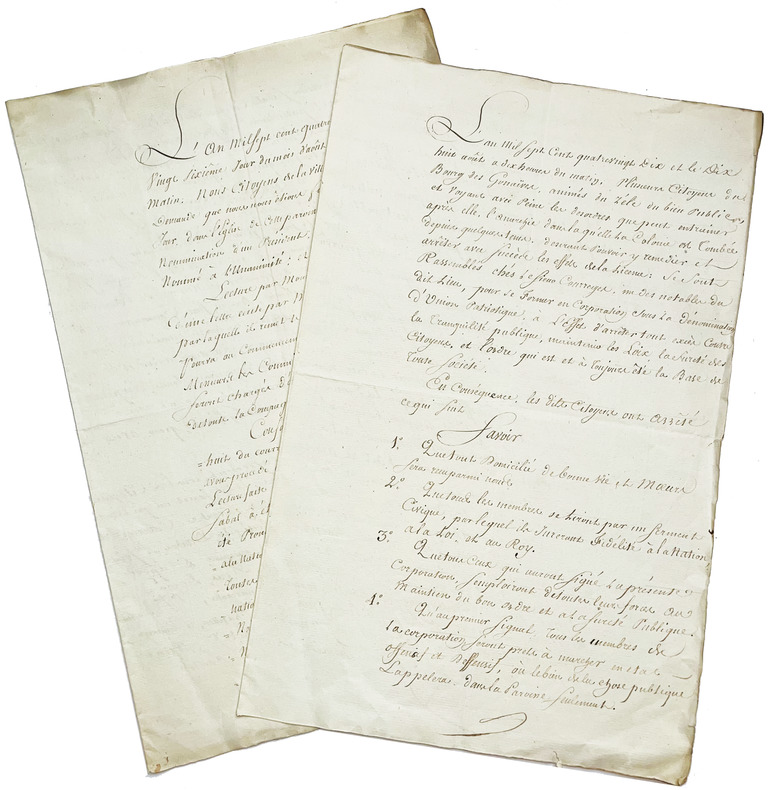 L'an Mil Sept Cent quatre
Vingt Sixième Jour du mois d'août
Matin. Nous Citoyens de la ville
Demande que nous nous étions f
Jour, dans l'église de
Nomination d'un Président
Nommé à l'Unanimité:
Lecture par Mon
d'une lettre écrite par M
par laquelle il remet
pourvu au Commencem
Seront chargés d
de toute la Compag
= huit du cour
avons procédé
Lecture faite
= à la Natio
= toutes
= natio
L'an Mil Sept Cent quatrevingt Dix et le Dix
huit août a dix heures du matin. Plusieurs Citoyens du
Bourg des Gonaïves, animés du Zéle du bien Public
et Voyant avec Peine les désordres que peut entrainer
après elle, l'anarchie dans laquelle La Colonie est tombée
depuis quelque tems, désirant Pouvoir y remédier et
arrêter avec Succès les effets de la Licence: Se Sont
Rassemblés chés le Sieur un des notables du
dit Lieu, pour se Former en Corporation sous la Dénomination
d'Union Patriotique, à L'effet d'arrêter tout excès Contre
la tranquilité publique, maintenir les Loix, la Sureté des
Citoyens, et l'ordre qui est et à toujours été la Base de
toute Société.
En Conséquence, les dits Citoyens ont Arrêté
ce qui suit
Savoir
1.° Que tout Domicilié de bonne vie et Mœurs
sera reçu parmi nous.
2.° Que tous les membres se Lieront par un Serment
Civique, par lequel ils Jureront Fidélité à la Nation,
a la Loi, et au Roy.
3.° Que tous Ceux qui auront Signé La présente
Corporation, s'emploiront de toutes leurs forces au
Maintien du bon ordre et a La Sureté Publique.
4.° Qu'au premier Signal, Tous les membres de
la corporation Seront prets à marcher
offensif et Deffensif, où le bien de la chose publique
L'appelera dans la Paroisse Seulement.